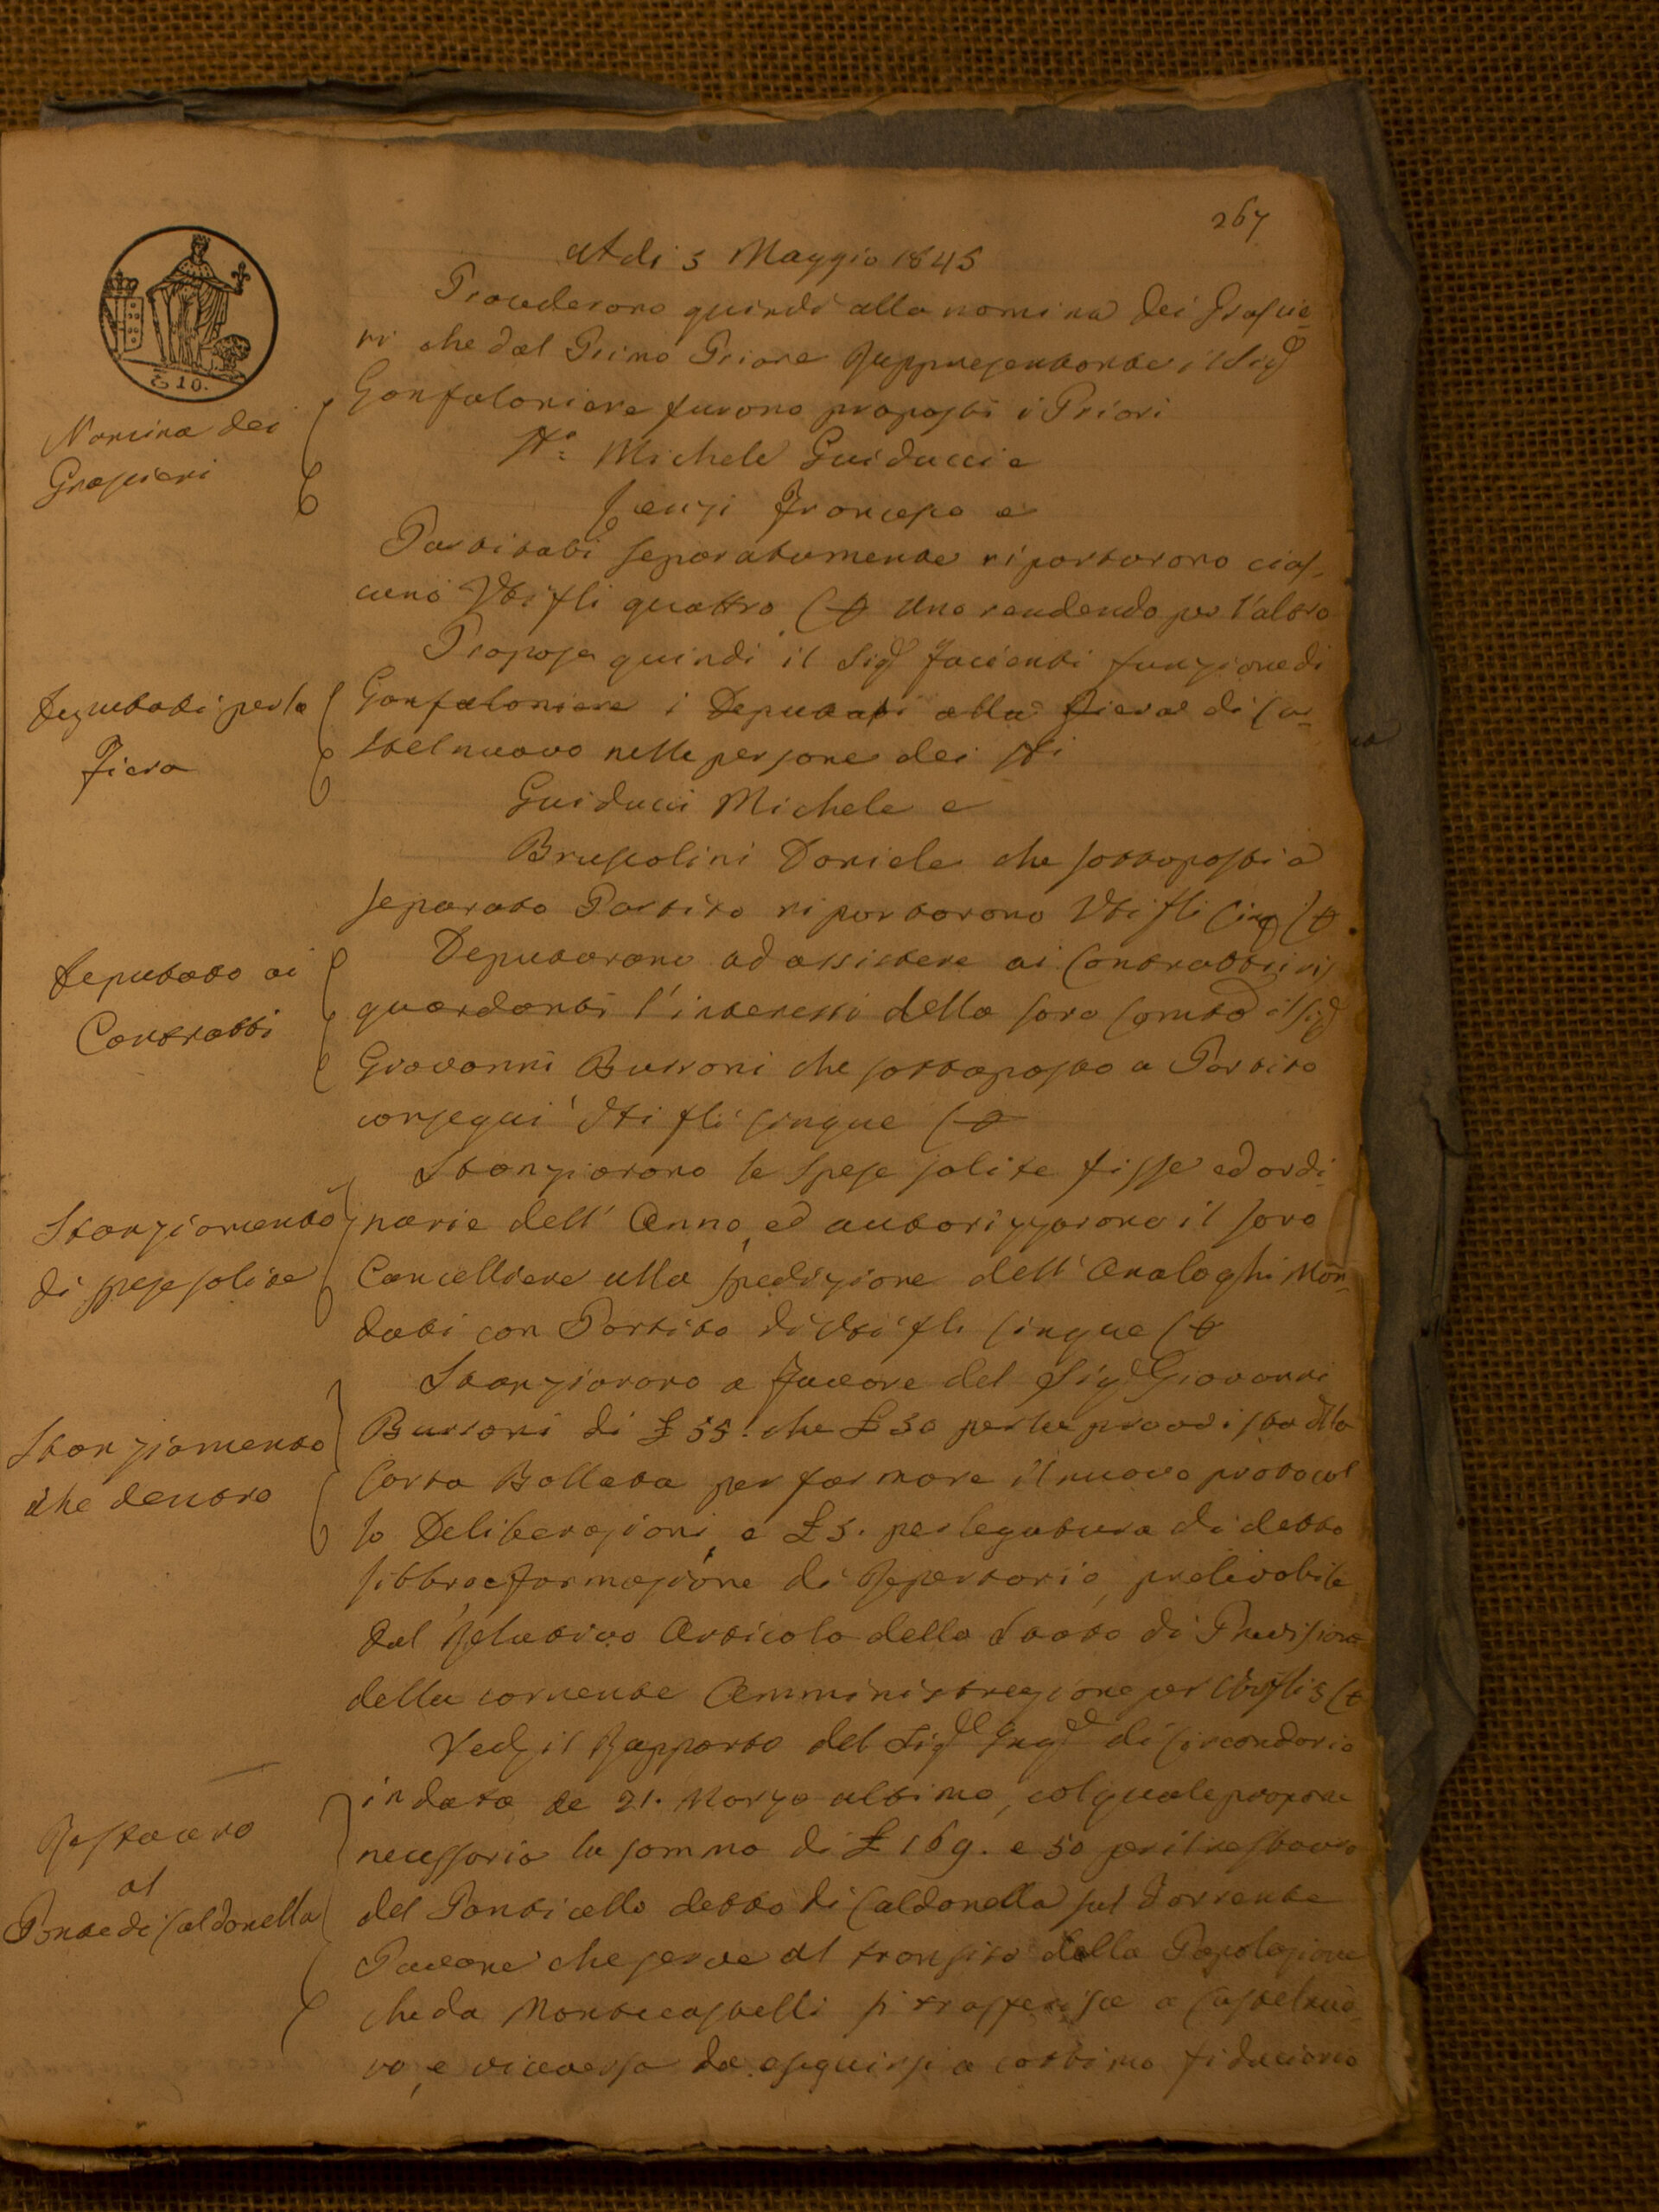 267
Adi 5 Maggio 1845
Procederono quindi alla nomina dei Grascie-
ri che dal Primo Priore Rappresentante il Sig.e
Gonfaloniere furono proposti i Priori
Nomina dei
Grascieri
Michele Guiducci e
Francesco e
Partitati separatamente riportarono cias-
cuno Vti fli quattro Uno rendendo per l'altro
Propose quindi il Sig.e facienti funzione di
Gonfaloniere i Deputati alla Fiera di Ca-
stelnuovo nelle persone dei
Deputati per la
Fiera
Guiducci Michele e
Bruscolini Daniele che sottoposti a
separato Partito riportarono Vti fli Cinq
Deputarono ad assistere ai Contratti ris-
guardanti l'interessi della loro Comtà il Sig.e
Giovanni Burroni che sottoposto a Partito
conseguì Vti fli cinque
Deputato ai
Contratti
Stanziarono le Spese solite fisse ed ordi-
narie dell' Anno, ed autorizzarono il loro
Cancelliere alla spedizione dell' Analoghi Man-
dati con Partito di Vti fli Cinque
Stanziamento
di spese solite
Stanziarono a Favore del Sig.e Giovanni
Burroni di £ 55. che £ 50 per la provvista della
Carta Bollata per formare il nuovo protocol
lo Deliberazioni, e £ 5. per legatura di detto
libbro e formazione di Repertorio, prelevabile
dal Relativo Articolo dello Stato di Previsione
della corrente Amministrazione per Vti fli 5
Stanziamento
che dentro
Ved. il Rapporto del Sig.e Ing.e di Circondario
in data de 21. Marzo ultimo, col quale propone
necessaria la somma di £ 169. e 50 per il restauro
del Ponticello detto di Caldanella sul Torrente
Pavone che serve al transito della Popolazione
che da Montecastelli si trasferisce a Castelnuo-
vo, e viceversa da eseguirsi a cottimo fiduciario
Restauro
al
Ponte di Caldanella
£ 10.